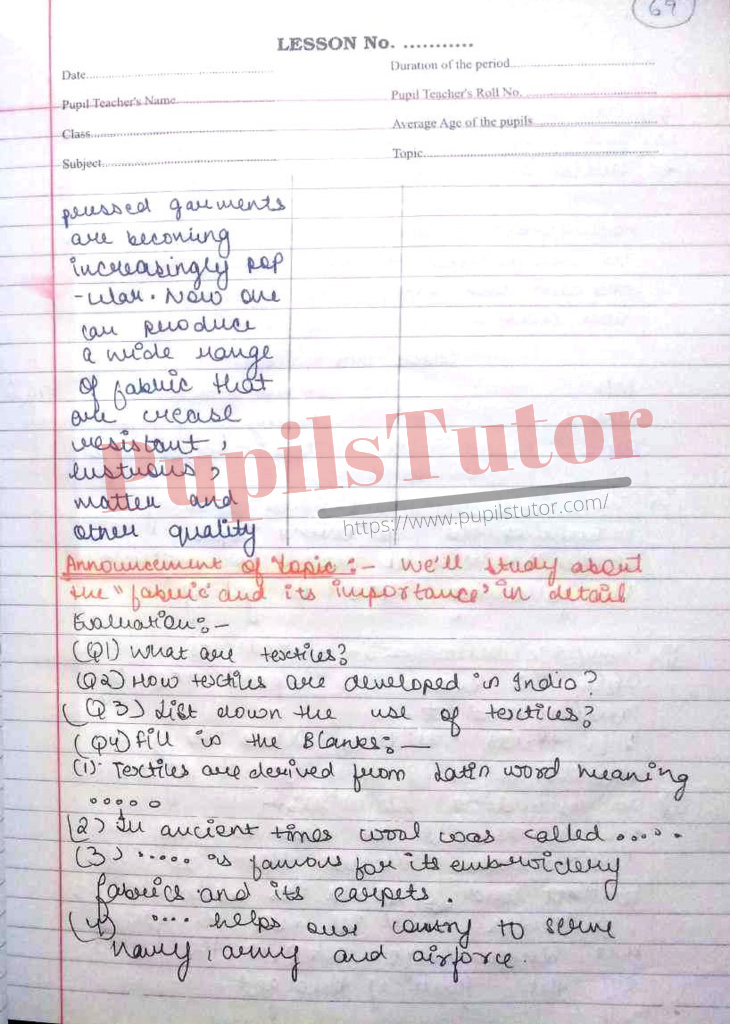 69
LESSON No. ...........
Date............................................................
Duration of the period................................................
Pupil Teacher's Name................................
Pupil Teacher's Roll No. ............................................
Class............................................................
Average Age of the pupils..........................................
Subject............................................................
Topic..........................................................................
pressed garments
are becoming
increasingly pop
-ular. Now one
can produce
a wide range
of fabric that
are crease
resistant,
lustrous,
matter and
other quality
PupilsTutor
https://www.pupilstutor.com/
Announcement of Topic :- we'll study about
the "fabric and its importance" in detail
Evaluation:-
(Q1) What are textiles?
(Q2) How textiles are developed in India?
(Q3) List down the use of textiles?
(Q4) Fill in the Blanks:-
(1). Textiles are derived from Latin word meaning
.....
(2) In ancient times wool was called .....
(3) ..... is famous for its embroidery
fabrics and its carpets.
(4) .... helps our country to serve
navy, army and airforce.